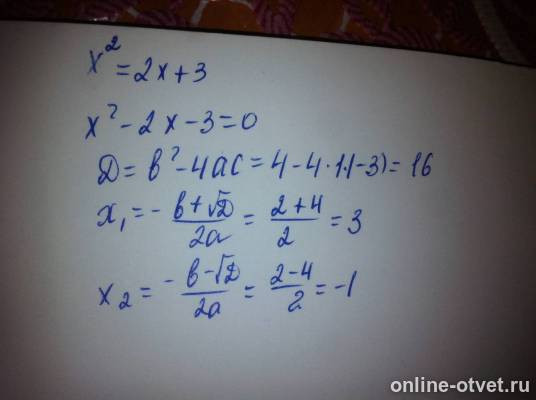 x² = 2x + 3
x² - 2x - 3 = 0
D = b² - 4ac = 4 - 4 · 1 · (-3) = 16
x₁ = - b + √D / 2a = 2 + 4 / 2 = 3
x₂ = - b - √D / 2a = 2 - 4 / 2 = -1
online-otvet.ru